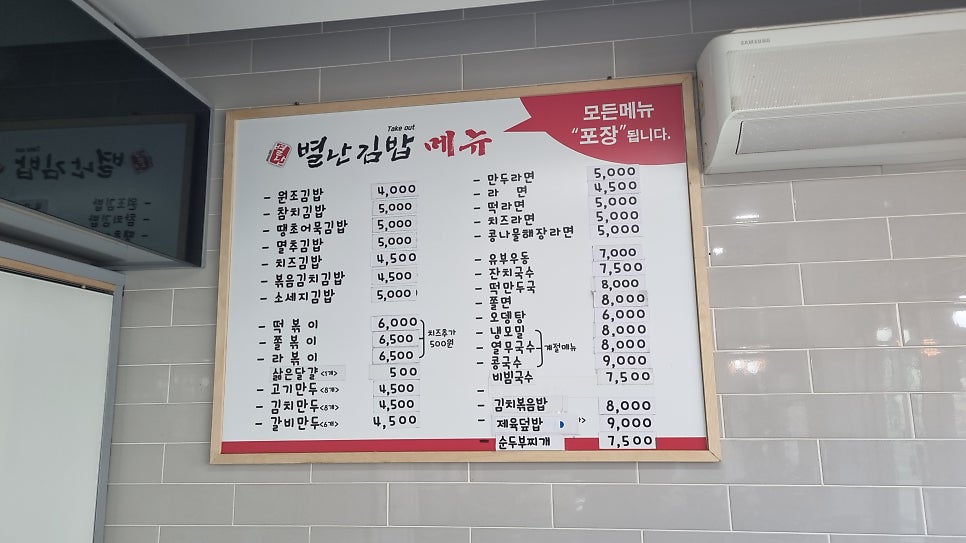 SAMSUNG
모든메뉴
"포장"됩니다.
Take out
별난김밥 메뉴
- 원조김밥 4,000
- 참치김밥 5,000
- 땡초어묵김밥 5,000
- 멸추김밥 5,000
- 치즈김밥 4,500
- 볶음김치김밥 4,500
- 소세지김밥 5,000
- 떡볶이 6,000
- 쫄볶이 6,500
- 라볶이 6,500
치즈추가
500원
삶은달걀<1개> 500
- 고기만두<8개> 4,500
- 김치만두<8개> 4,500
- 갈비만두<6개> 4,500
- 만두라면 5,000
- 라 면 4,500
- 떡라면 5,000
- 치즈라면 5,000
- 콩나물해장라면 5,000
- 유부우동 7,000
- 잔치국수 7,500
- 떡만두국 8,000
- 쫄면 8,000
- 오뎅탕 6,000
- 냉모밀 8,000
- 열무국수 8,000
- 콩국수 9,000
계절메뉴
비빔국수 7,500
- 김치볶음밥 8,000
- 제육덮밥 9,000
- 순두부찌개 7,500